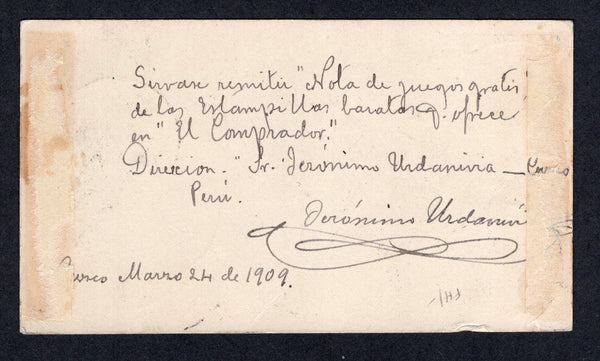 Sirvase remitir "Nota de juegos gratis
de las Estampillas baratas q. ofrece
en "El Comprador."
Direccion. "Sr. Jerónimo Urdanivia — Cuzco
Perú.
Jerónimo Urdanivi
uzco Marzo 24 de 1909.